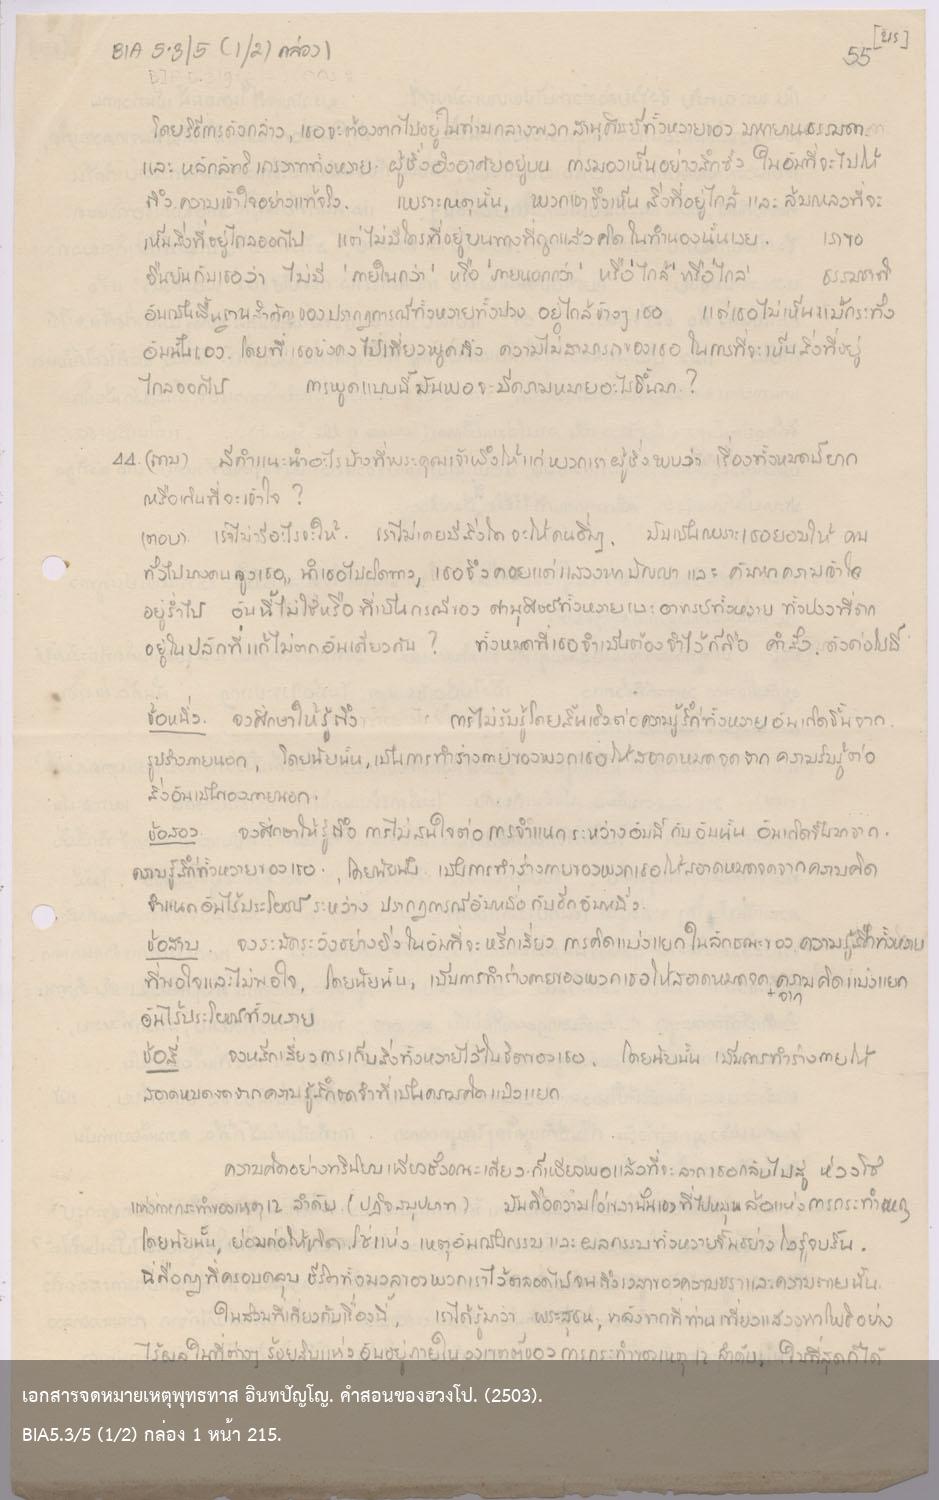 BIA 5.3/5 (1/2) กล่อง 1
55
โดยวิธีการดังกล่าว, เธอจะต้องตกไปอยู่ในท่ามกลางพวกสานุศิษย์ทั้งหลายของ มหายานธรรมดา
และ หลักลัทธิเถรวาททั้งหลาย ผู้ซึ่งอิงอาศัยอยู่บน การมองเห็นอย่างลึกซึ้ง ในอันที่จะไปให้
ถึงความเข้าใจอย่างแท้จริง. เพราะเหตุนั้น, พวกเขาจึงเห็นสิ่งที่อยู่ใกล้ และ ล้มเหลวที่จะ
เห็นสิ่งที่อยู่ไกลออกไป แต่ไม่มีใครที่อยู่บนทางที่ถูกแล้วคิดในทำนองนั้นเลย. เราขอ
ยืนยันกับเธอว่า ไม่มี 'ภายในกว่า' หรือ 'ภายนอกกว่า' หรือ 'ใกล้' หรือ 'ไกล' ธรรมชาติ
อันเป็นพื้นฐานสำคัญของปรากฏการณ์ทั้งหลายทั้งปวง อยู่ใกล้ข้างๆ เธอ แต่เธอไม่เห็นแม้กระทั่ง
อันนั้นเอง. โดยที่เธอยังคงไปเที่ยวพูดถึง ความไม่สามารถของเธอ ในการที่จะเห็นสิ่งที่อยู่
ไกลออกไป การพูดแบบนี้มันพอจะมีความหมายอะไรขึ้นมา ?
44. (ถาม) มีคำแนะนำอะไรบ้างที่พระคุณเจ้าพึงให้แก่พวกเราผู้ซึ่งพบว่า เรื่องทั้งหมดนี้ยาก
เหลือเกินที่จะเข้าใจ ?
(ตอบ) เราไม่มีอะไรจะให้. เราไม่เคยมีสิ่งใดจะให้คนอื่นๆ. มันเป็นเพราะเธอยอมให้ คน
ทั่วไปบางคนจูงเธอ, นำเธอไปผิดทาง, เธอจึงคอยแต่แสวงหาปัญญา และ ค้นหาความเข้าใจ
อยู่ร่ำไป อันนี้ไม่ใช่หรือ ที่เป็นกรณีของ สานุศิษย์ทั้งหลายและอาจารย์ทั้งหลาย ทั้งปวงที่ตก
อยู่ในปลักที่แก้ไม่ตกอันเดียวกัน ? ทั้งหมดที่เธอจำเป็นต้องจำไว้ก็คือ คำสั่ง. ดังต่อไปนี้
ข้อหนึ่ง. จงศึกษาให้รู้ถึง การไม่รับรู้โดยสิ้นเชิงต่อความรู้สึกทั้งหลายอันเกิดขึ้นจาก
รูปร่างภายนอก, โดยนัยนั้น, เป็นการทำร่างกายของพวกเธอให้สะอาดหมดจดจาก ความรับรู้ต่อ
สิ่งอันเป็นของภายนอก.
ข้อสอง. จงศึกษาให้รู้ถึง การไม่สนใจต่อ การจำแนกระหว่างอันนี้ กับ อันนั้น อันเกิดขึ้นมาจาก
ความรู้สึกทั้งหลายของเธอ., โดยนัยนั้น เป็นการทำร่างกายของพวกเธอให้สะอาดหมดจดจากความคิด
จำแนกอันไร้ประโยชน์ ระหว่าง ปรากฏการณ์อันหนึ่ง กับอีกอันหนึ่ง.
ข้อสาม. จงระมัดระวังอย่างยิ่ง ในอันที่จะหลีกเลี่ยง การคิดแบ่งแยก ในลักษณะของ ความรู้สึกทั้งหลาย
ที่พอใจและไม่พอใจ, โดยนัยนั้น, เป็นการทำร่างกายของพวกเธอให้สะอาดหมดจดจากความคิดแบ่งแยก
อันไร้ประโยชน์ทั้งหลาย
ข้อสี่ จงหลีกเลี่ยงการเก็บสิ่งทั้งหลายไว้ในจิตของเธอ. โดยนัยนั้น เป็นการทำร่างกายให้
สะอาดหมดจดจากความรู้สึกจดจำที่เป็นความคิดแบ่งแยก
ความคิดอย่างทวินิยมเพียงชั่วขณะเดียวก็เพียงพอแล้วที่จะลากเธอกลับไปสู่ ห่วงโซ่
แห่งการกระทำของเหตุ 12 ลำดับ (ปฏิจจสมุปบาท) มันคือความโง่เขลานั่นเองที่ไปหมุนล้อแห่งการกระทำเหตุ
โดยนัยนั้น, ย่อมก่อให้เกิดโซ่แห่ง เหตุอันเป็นกรรม และ ผลกรรมทั้งหลายขึ้นอย่างไม่รู้จบสิ้น.
นี่คือกฎที่ครอบคลุม ชีวิตทั้งมวลของพวกเราไว้ตลอดไปจนถึงเวลาของความชราและความตายนั้น
ในส่วนที่เกี่ยวกับเรื่องนี้, เราได้รู้มาว่า พระสุธน, หลังจากที่ท่านเที่ยวแสวงหาโพธิอย่าง
ไร้ผล ในที่ต่างๆ ร้อยสิบแห่ง อันอยู่ภายในวงเขตต์ของ การกระทำของเหตุ 12 ลำดับ, ในที่สุดก็ได้
เอกสารจดหมายเหตุพุทธทาส อินทปัญโญ. คำสอนของฮวงโป. (2503).
BIA5.3/5 (1/2) กล่อง 1 หน้า 215.